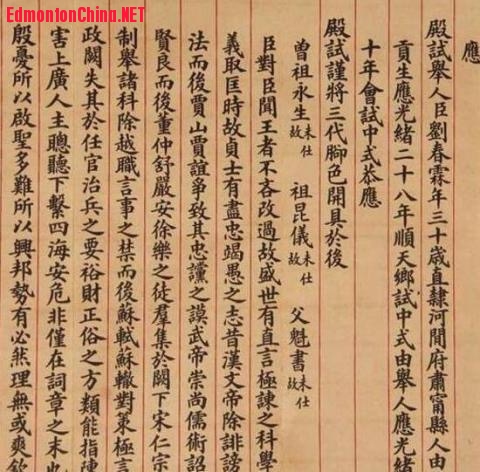 EdmontonChina.NET
應
殿試舉人臣劉春霖年三十歲直隸河間府肅甯縣人由
貢生應光緒二十八年順天鄉試中式由舉人應光緒
十年會試中式恭應
殿試謹將三代腳色開具於後
曾祖永生未仕故 祖昆儀未仕故 父魁書未仕故
臣對臣聞王者不吝改過故盛世有直言極諫之科學
義取匡時故貞士有盡忠竭愚之志昔漢文帝除誹謗
法而後賈山賈誼爭致其忠讜之謨武帝崇尚儒術詔
賢良而後董仲舒嚴安徐樂之徒羣集於闕下宋仁宗
制舉諸科除越職言事之禁而後蘇軾蘇轍對策極言
政闕失其於任官治兵之要裕財正俗之方類能指陳
害上廣人主聰聽下繫四海安危非僅在詞章之末也
殷憂所以啟聖多難所以興邦勢有必然理無或爽欽